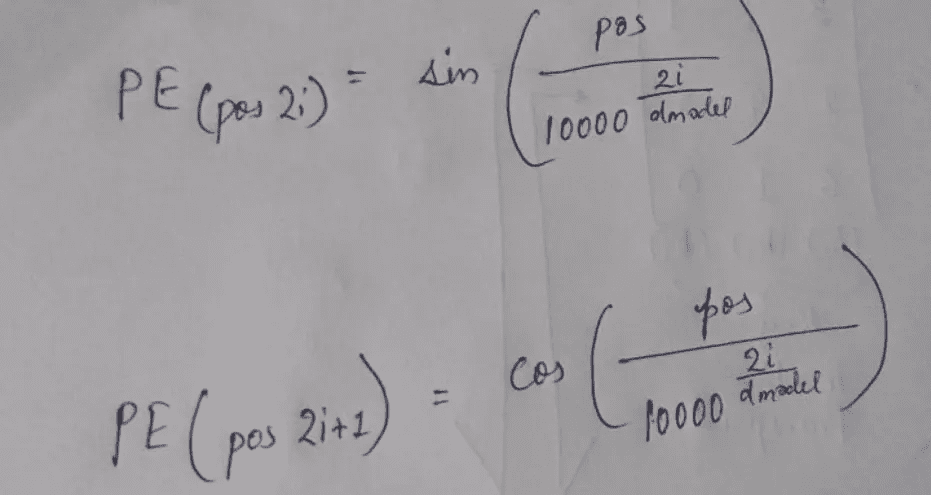 PE (pos 2i) = sin ( pos / 10000^(2i / dmodel) )
PE ( pos 2i+1 ) = cos ( pos / 10000^(2i / dmodel) )